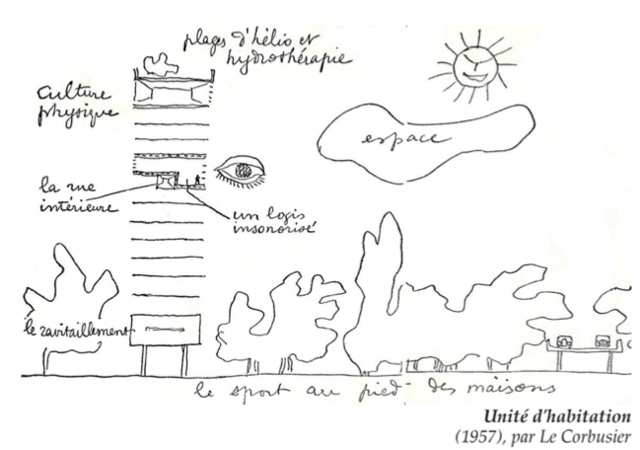 plages d'hélio et
hydrothérapie
culture
physique
espace
la rue
intérieure
un logis
insonorisé
le ravitaillement
le sport au pied des maisons
Unité d'habitation
(1957), par Le Corbusier